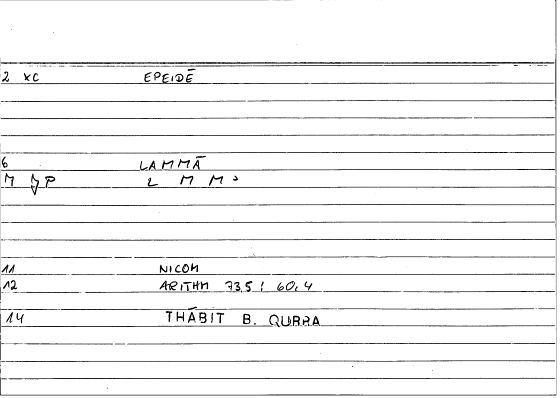 2 XC EPEIDĒ
6 LAMMĀ
M P L M M
11 NICOM
12 ARITHM 73,5 : 60,4
14 THĀBIT B. QURRA